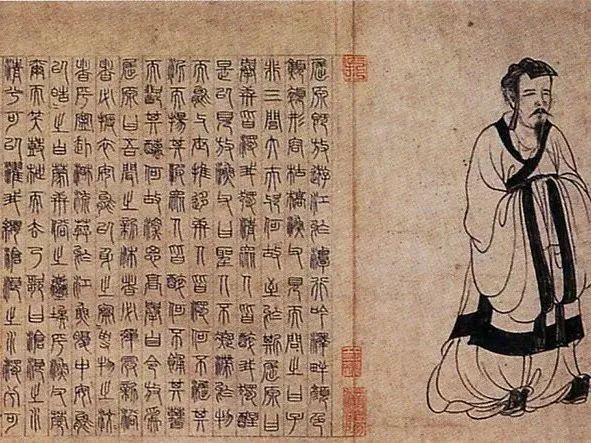 屈原既放游江於潭行吟澤畔顏色
憔悴形容枯槁漁父見而問之曰子
非三閭大夫與何故至於斯屈原曰
舉世皆濁我獨清眾人皆醉我獨醒
是以見放漁父曰聖人不凝滯於物
而能與世推移世人皆濁何不淈其
泥而揚其波眾人皆醉何不餔其糟
而歠其醨何故深思高舉自令放為
屈原曰吾聞之新沐者必彈冠新浴
者必振衣安能以身之察察受物之汶汶
者乎寧赴湘流葬於江魚腹中安能
以皓皓之白而蒙世俗之塵埃乎漁父莞
爾而笑鼓枻而去乃歌曰滄浪之水
清兮可以濯我纓滄浪之水濁兮可